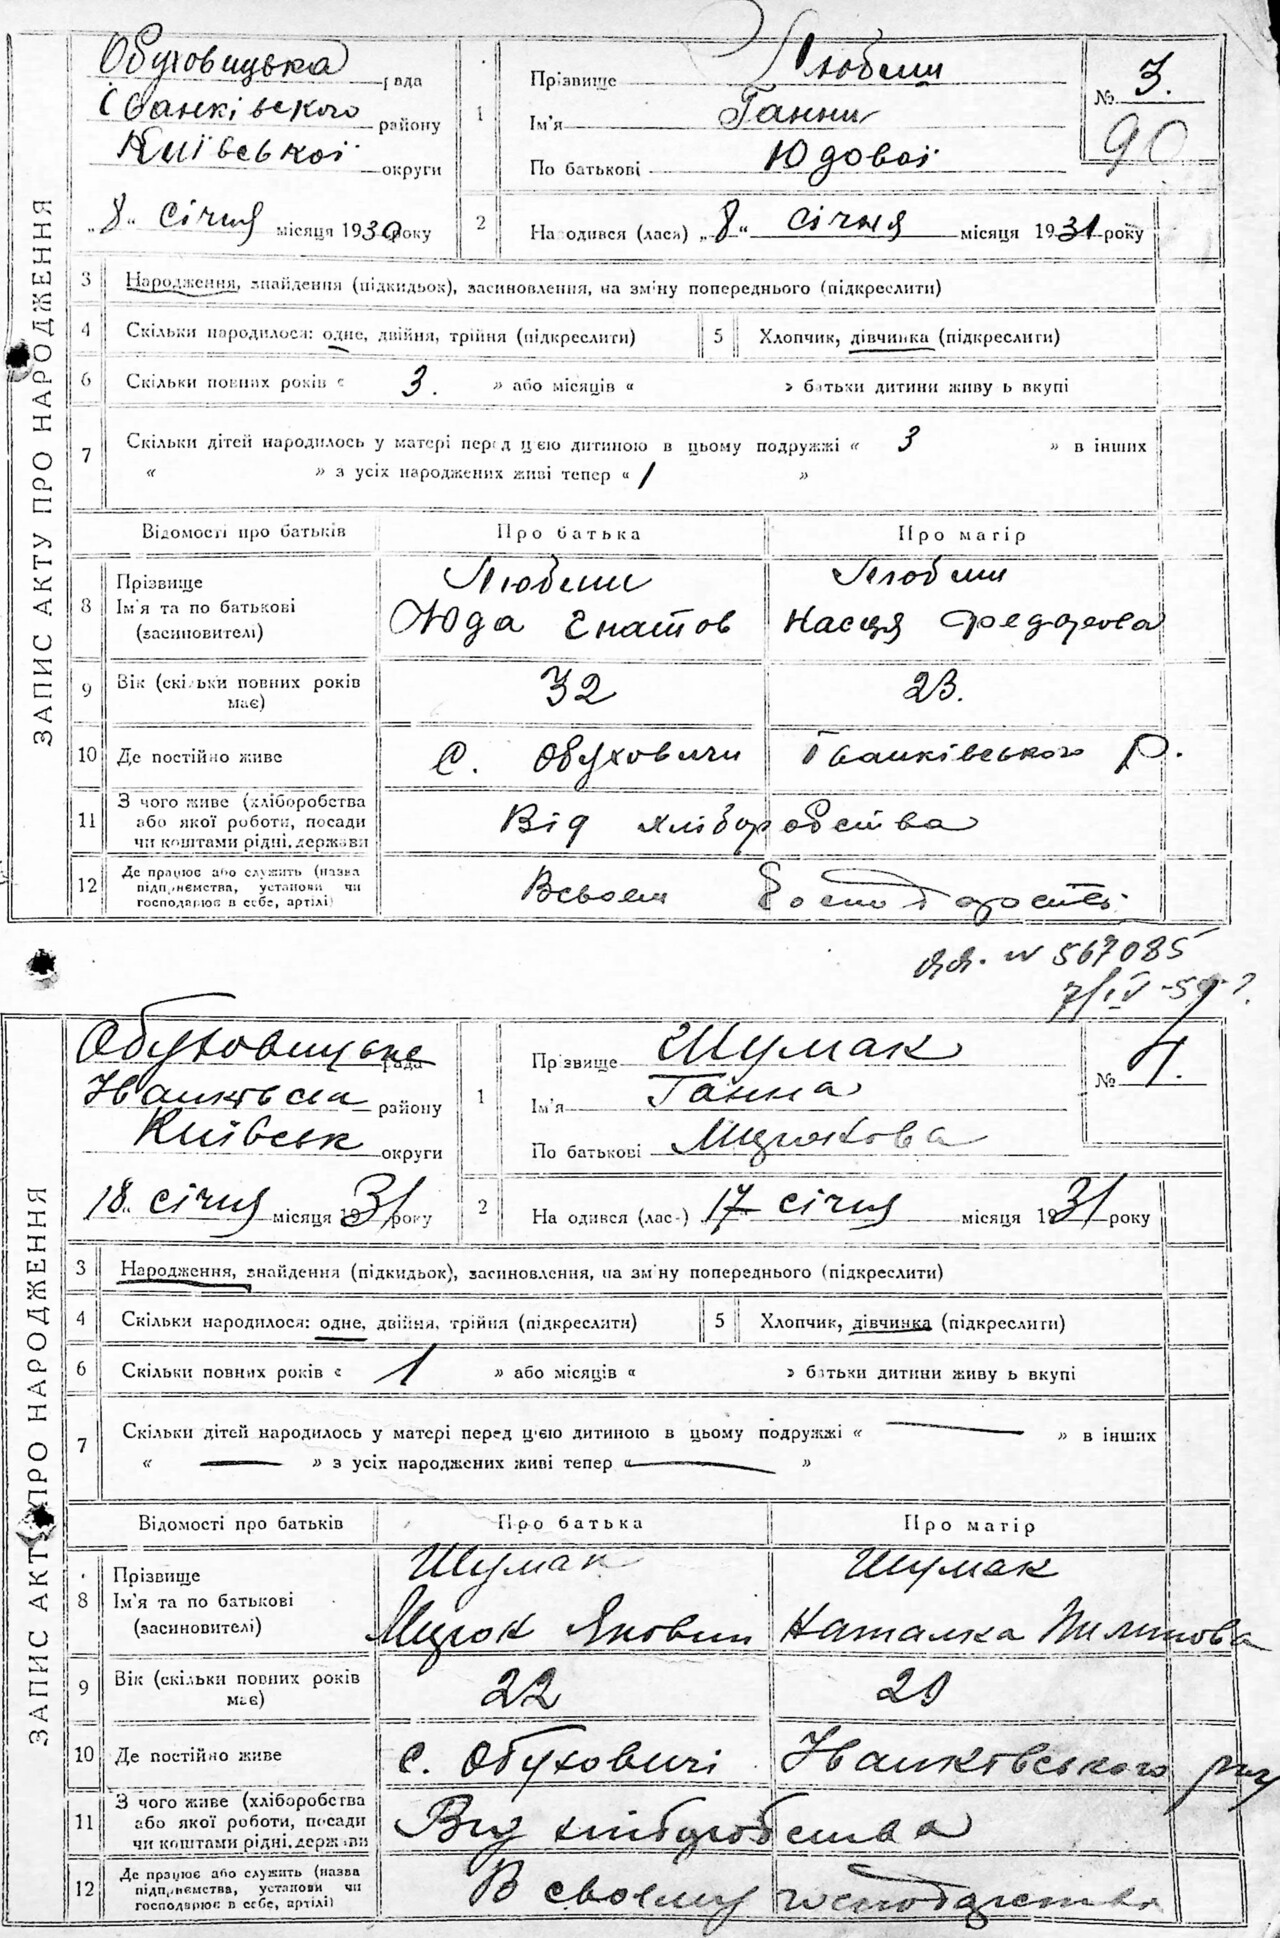 ЗАПИС АКТУ ПРО НАРОДЖЕННЯ
Обуховицька рада
Іванківського району
Київської округи
„8" січня місяця 1930 року
1 Прізвище
Ім'я Ганни
По батькові Юдової
№ 3.
90
2 На одився (лася) „8" січня місяця 1931 року
3 Народження, знайдення (підкидьок), засиновлення, на зміну попереднього (підкреслити)
4 Скільки народилося: одне, двійня, трійня (підкреслити) 5 Хлопчик, дівчинка (підкреслити)
6 Скільки повних років « 3. » або місяців « » батьки дитини живуть вкупі
7 Скільки дітей народилось у матері перед цією дитиною в цьому подружжі « 3 » в інших
« » з усіх народжених живі тепер « 1 »
Відомості про батьків Про батька Про матір
8 Прізвище
Ім'я та по батькові Юда Гнатов Насця Федорова
(засиновителі)
9 Вік (скільки повних років має) 32 23.
10 Де постійно живе С. Обуховичи Іванківського р.
11 З чого живе (хліборобства або якої роботи, посади чи коштами рідні, держави Від хліборобства
12 Де працює або служить (назва підприємства, установи чи господарює в себе, артілі)
№ 567085
7/IV-59
ЗАПИС АКТУ ПРО НАРОДЖЕННЯ
Обуховицьке рада
району
Київськ округи
18" січня місяця 1931 року
1 Прізвище Шумак
Ім'я Ганна
По батькові
№ 4.
2 На одився (лас-) 17 січня місяця 1931 року
3 Народження, знайдення (підкидьок), засиновлення, на зміну попереднього (підкреслити)
4 Скільки народилося: одне, двійня, трійня (підкреслити) 5 Хлопчик, дівчинка (підкреслити)
6 Скільки повних років « 1 » або місяців « » батьки дитини живуть вкупі
7 Скільки дітей народилось у матері перед цією дитиною в цьому подружжі « — » в інших
« — » з усіх народжених живі тепер « — »
Відомості про батьків Про батька Про матір
8 Прізвище Шумак Шумак
Ім'я та по батькові Наталка Пилипова
(засиновителі)
9 Вік (скільки повних років має) 22 20
10 Де постійно живе с. Обуховичі Іванківського
11 З чого живе (хліборобства або якої роботи, посади чи коштами рідні, держави хліборобства
12 Де працює або служить (назва підприємства, установи чи господарює в себе, артілі) В своєму